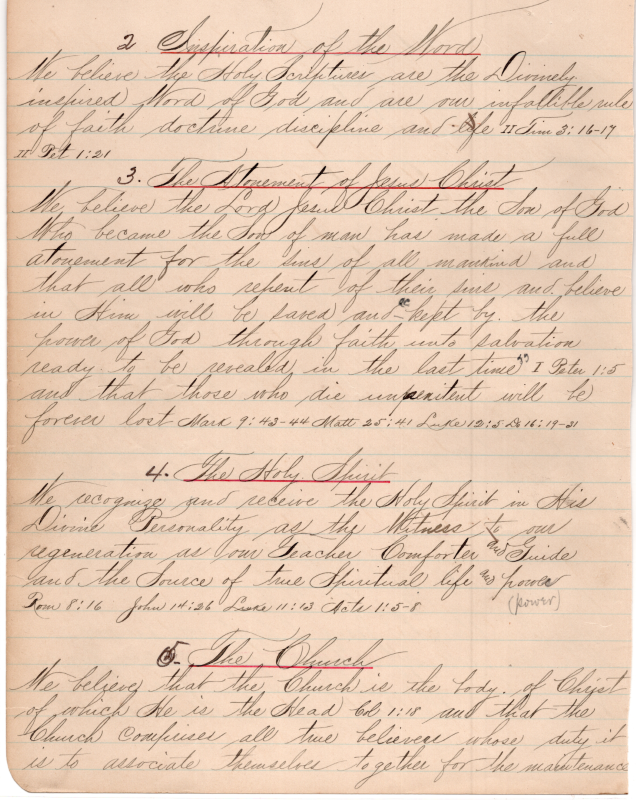 2 Inspiration of the Word
We believe the Holy Scriptures are the Divinely
inspired Word of God and are our infallible rule
of faith doctrine discipline and life II Tim 3:16-17
II Pet 1:21
3. The Atonement of Jesus Christ
We believe the Lord Jesus Christ the Son of God
Who became the Son of man has made a full
atonement for the sins of all mankind and
that all who repent of their sins and believe
in Him will be saved and "kept by the
power of God through faith unto salvation
ready to be revealed in the last time" I Peter 1:5
and that those who die impenitent will be
forever lost Mark 9:43-44 Matt 25:41 Luke 12:5 Do 16:19-31
4. The Holy Spirit
We recognize and receive the Holy Spirit in His
Divine Personality as the Witness to our
regeneration as our Teacher Comforter and Guide
and the Source of true Spiritual life and power
(power)
Rom 8:16 John 14:26 Luke 11:13 Acts 1:5-8
5. The Church
We believe that the Church is the body of Christ
of which He is the Head Col 1:18 and that the
Church comprises all true believers whose duty it
is to associate themselves together for the maintenance